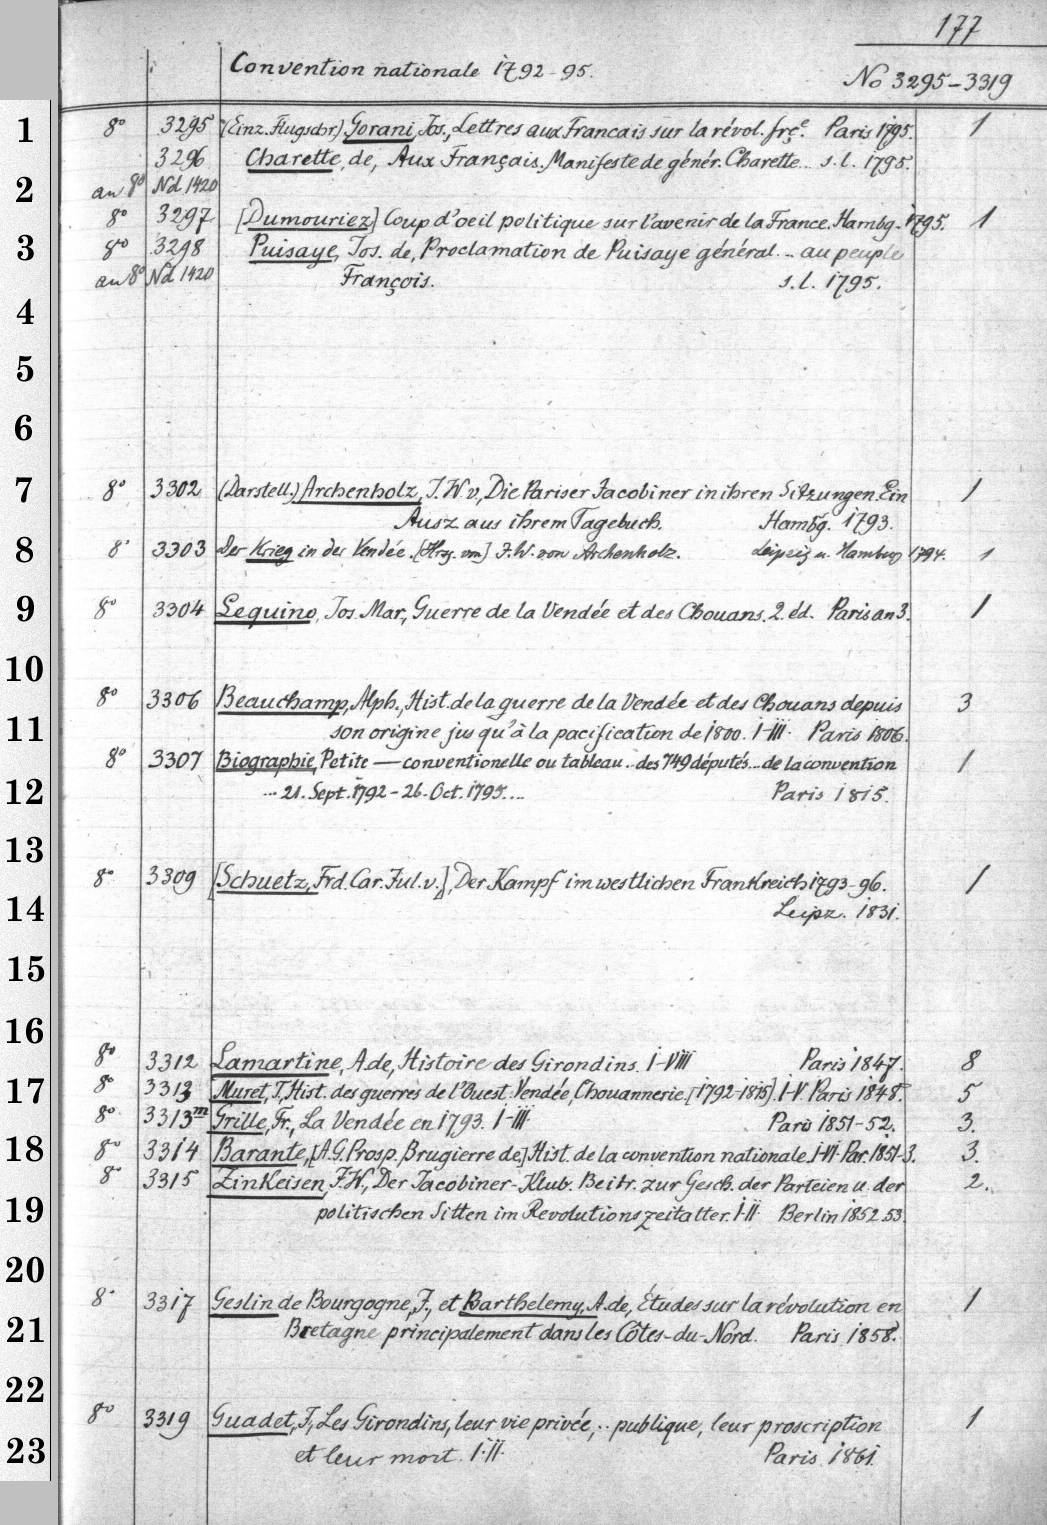 177
Convention nationale 1792-95.
No 3295-3319
1
8° 3295 (Einz. Flugschr.) Gorani, Jos., Lettres aux Francais sur la révol. frçe. Paris 1795. 1
3296 Charette, de, Aux Français. Manifeste de génér. Charette... s.l. 1795.
2
an 8° Nd 1420
8° 3297 [Dumouriez] Coup d'oeil politique sur l'avenir de la France. Hambg. 1795. 1
3
8° 3298 Puisaye, Jos. de, Proclamation de Puisaye général... au peuple
an 8° Nd 1420 François. s.l. 1795.
4
5
6
7
8° 3302 (Darstell.) Archenholz, J. W. v., Die Pariser Jacobiner in ihren Sitzungen. Ein 1
Ausz. aus ihrem Tagebuch. Hambg. 1793.
8
8° 3303 Der Krieg in der Vendée. [Hrsg. von] J. W. von Archenholz. Leipzig u. Hamburg 1794. 1
9
8° 3304 Lequino, Jos. Mar., Guerre de la Vendée et des Chouans. 2. éd. Paris an 3. 1
10
8° 3306 Beauchamp, Alph., Hist. de la guerre de la Vendée et des Chouans depuis 3
11
son origine jus qu'à la pacification de 1800. I-III. Paris 1806.
8° 3307 Biographie, Petite — conventionelle ou tableau.. des 749 députés... de la convention 1
12
... 21. Sept. 1792-26. Oct. 1795.... Paris 1815.
13
8° 3309 [Schuetz, Frd. Car. Jul. v.], Der Kampf im westlichen Frankreich 1793-96. 1
14
Leipz. 1831.
15
16
8° 3312 Lamartine, A. de, Histoire des Girondins. I-VIII Paris 1847. 8
17
8° 3313 Muret, T., Hist. des guerres de l'Ouest. Vendée, Chouannerie. [1792-1815]. I-V. Paris 1848. 5
8° 3313m Grille, Fr., La Vendée en 1793. I-III. Paris 1851-52. 3.
18
8° 3314 Barante, [A. G. Prosp. Brugierre de] Hist. de la convention nationale. I-VI. Par. 1851-3. 3.
8° 3315 Zinkeisen, J. W., Der Jacobiner-Klub. Beitr. zur Gesch. der Parteien u. der 2.
19
politischen Sitten im Revolutionszeitalter. I-II. Berlin 1852.53.
20
8° 3317 Geslin de Bourgogne, J., et Barthelemy, A. de, Études sur la révolution en 1
21
Bretagne principalement dans les Côtes-du-Nord. Paris 1858.
22
8° 3319 Guadet, J., Les Girondins, leur vie privée,.. publique, leur proscription 1
23
et leur mort. I.II. Paris 1861.